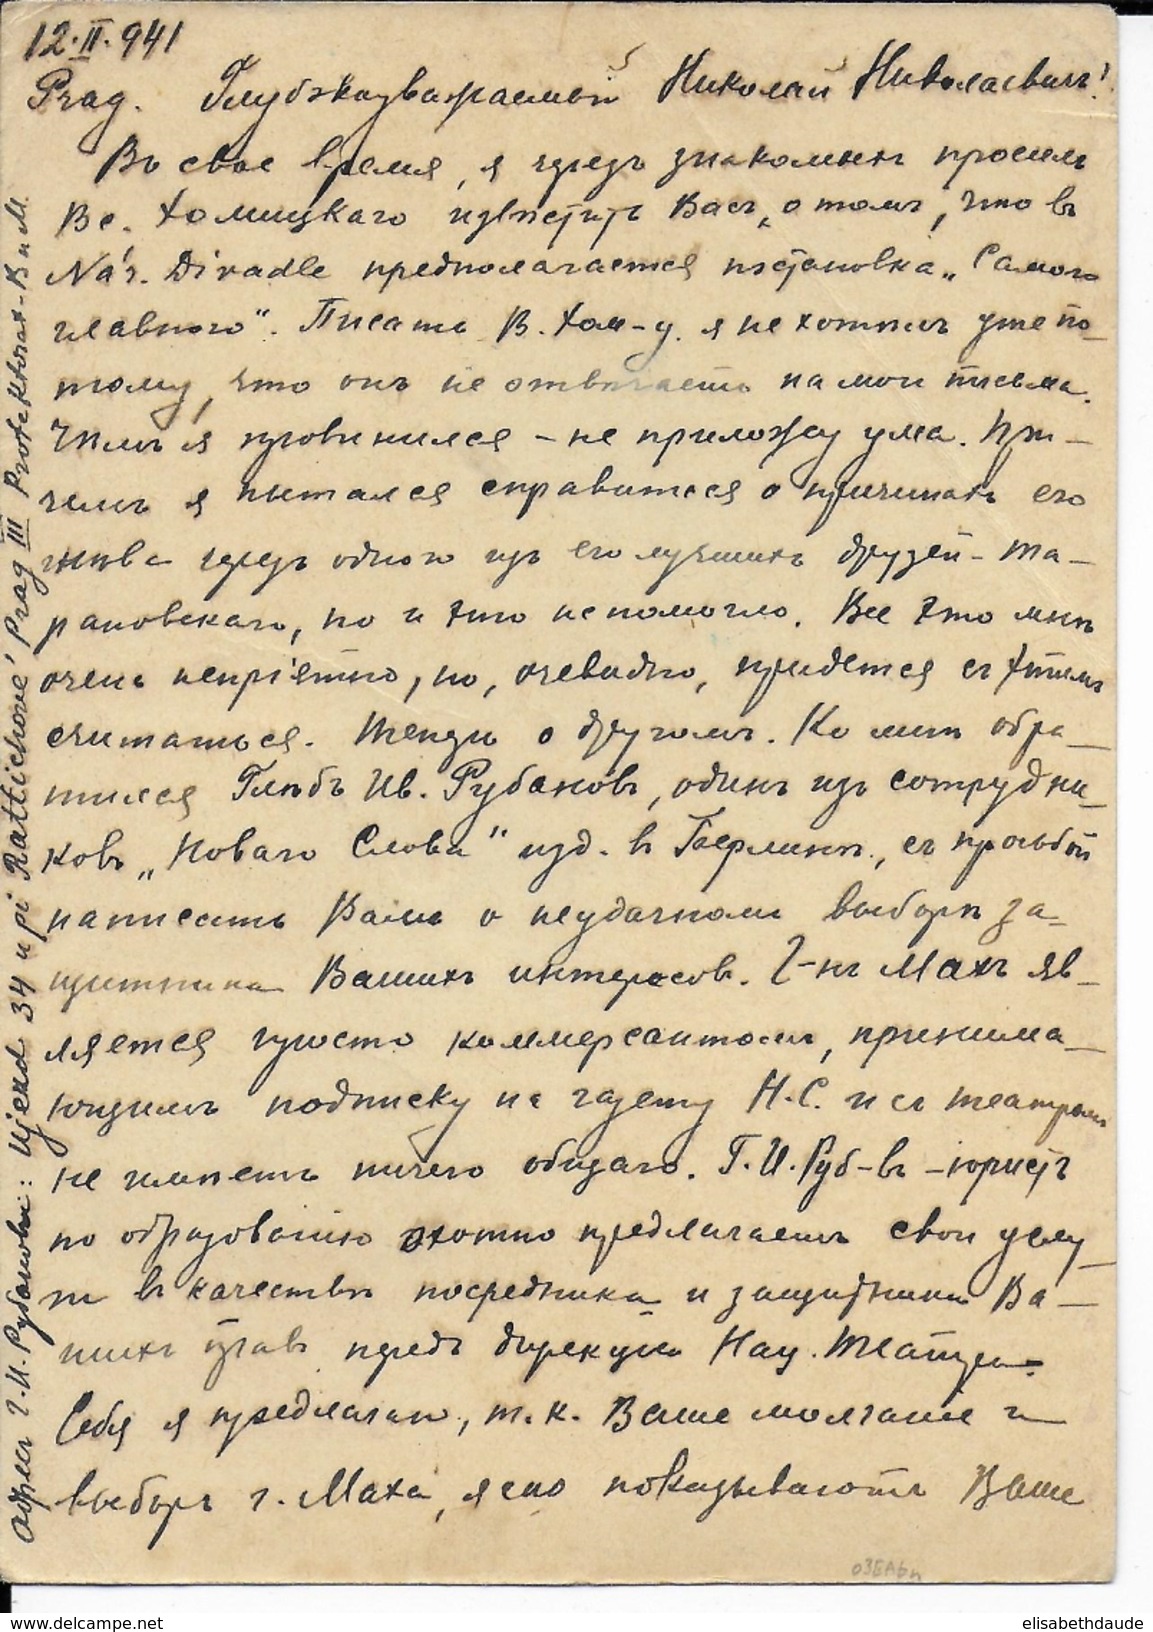 12.II.941
Prag. Глубокоуважаемый Николай Николаевичъ!
Въ свое время, я черезъ знакомыхъ просилъ
Вс. Хомицкаго извѣстить Васъ, о томъ, что въ
Nár. Divadle предполагается постановка „Самого
главного". Писать В. Хом-у. я не хотѣлъ уже по-
тому, что онъ не отвѣчаетъ на мои письма.
Чѣмъ я провинился - не приложу ума. При-
чемъ я пытался справиться о причинахъ его
гнѣва черезъ одного изъ его лучшихъ друзей - Та-
рановскаго, но и это не помогло. Все это мнѣ
очень непріятно, но, очевидно, придется съ этимъ
считаться. Теперь о другомъ. Ко мнѣ обра-
тился Глѣбъ Ив. Рубановъ, одинъ изъ сотрудни-
ковъ „Новаго Слова" изд. въ Берлинѣ, съ просьбой
написать Вамъ о неудачномъ выборѣ за-
щитника Вашихъ интересовъ. Г-нъ Махъ яв-
ляется просто коммерсантомъ, принима-
ющимъ подписку на газету Н.С. и съ театромъ
не имѣетъ ничего общаго. Г.И. Руб-въ - юристъ
по образованію охотно предлагаетъ свои услу-
ги въ качествѣ посредника и защитника Ва-
шихъ правъ передъ дирекціей Нац. Театра.
Себя я предлагаю, т.к. Ваше молчаніе и
выборъ г. Маха, ясно показываютъ Ваше
Адресъ Г.И. Рубанова: Ujezd 34 u pí Rattichové, Prag III Protektorat B u M.
ОЗЕАБп
elisabethdaude